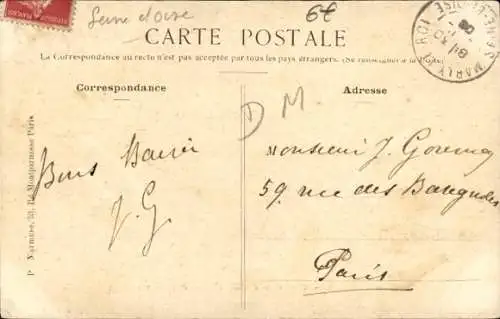 Seine et oise
6€
CARTE POSTALE
La Correspondance au recto n'est pas acceptée par tous les pays étrangers. (Se renseigner à la Poste)
Correspondance
Adresse
D M
MARLY ROI
SEINE-ET-OISE
Bons Baisers
J. G.
Monsieur J.
59 rue des Batignolles
Paris
Bd Montparnasse Paris